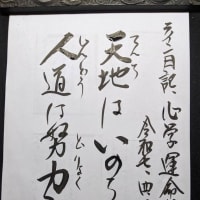 日記、心学運命
令和七、
てんち
天地はいのち
じんどう どりよく
人道は努力